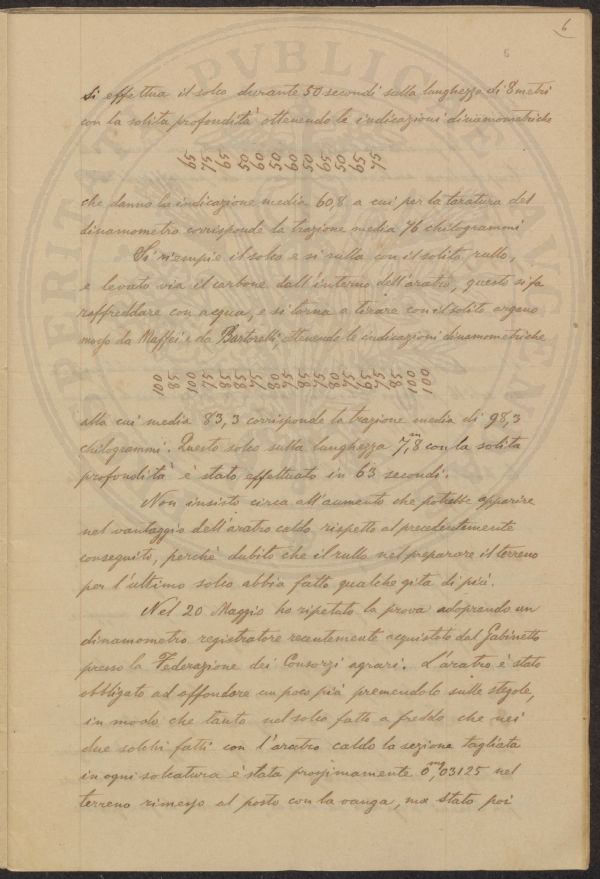 6
si effettua il solco durante 50 secondi sulla lunghezza di 8 metri
con la solita profondità ottenendo le indicazioni dinamometriche
65 75 65 50 60 50 60 50 65 50 65 75
che danno la indicazione media 60,8 a cui per la taratura del
dinamometro corrisponde la trazione media 76 chilogrammi
Si riempie il solco e si rulla con il solito rullo,
e levato via il carbone dall'interno dell'aratro, questo si fa
raffreddare con acqua, e si torna a tirare con il solito argano
mosso da Maffei e da Bartorelli ottenendo le indicazioni dinamometriche
100 85 100 75 85 85 75 80 75 85 75 80 75 65 75 85 100 100
alla cui media 83,3 corrisponde la trazione media di 98,3
chilogrammi. Questo solco sulla lunghezza 7,m8 con la solita
profondità è stato effettuato in 63 secondi.
Non insisto circa all'aumento che potrebbe apparire
nel vantaggio dell'aratro caldo rispetto al precedentemente
conseguito, perchè dubito che il rullo nel preparare il terreno
per l'ultimo solco abbia fatto qualche gita di più.
Nel 20 Maggio ho ripetuto la prova adoprando un
dinamometro registratore recentemente acquistato dal Gabinetto
presso la Federazione dei Consorzi agrari. L'aratro è stato
obbligato ad affondare un poco più premendolo sulle stegole,
in modo che tanto nel solco fatto a freddo che nei
due solchi fatti con l'aratro caldo la sezione tagliata
in ogni solcatura è stata prossimamente 0,mq03125 nel
terreno rimesso al posto con la vanga, ma stato poi